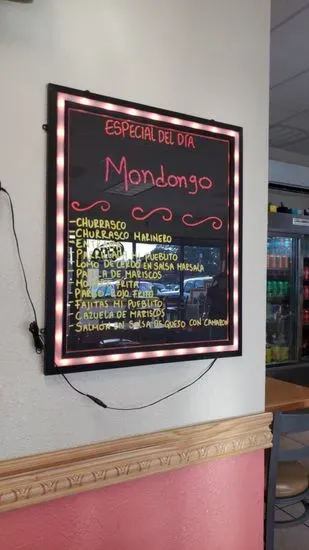 ESPECIAL DEL DÍA
Mondongo
-CHURRASCO
-CHURRASCO MARINERO
-PARRILLADA MI PUEBLITO
-LOMO DE CERDO EN SALSA MARSALA
-PAELLA DE MARISCOS
FRITA
-PARGO ROJO FRITO
-FAJITAS MI PUEBLITO
-CAZUELA DE MARISCOS
-SALMON EN SALSA DE QUESO CON CAMARON